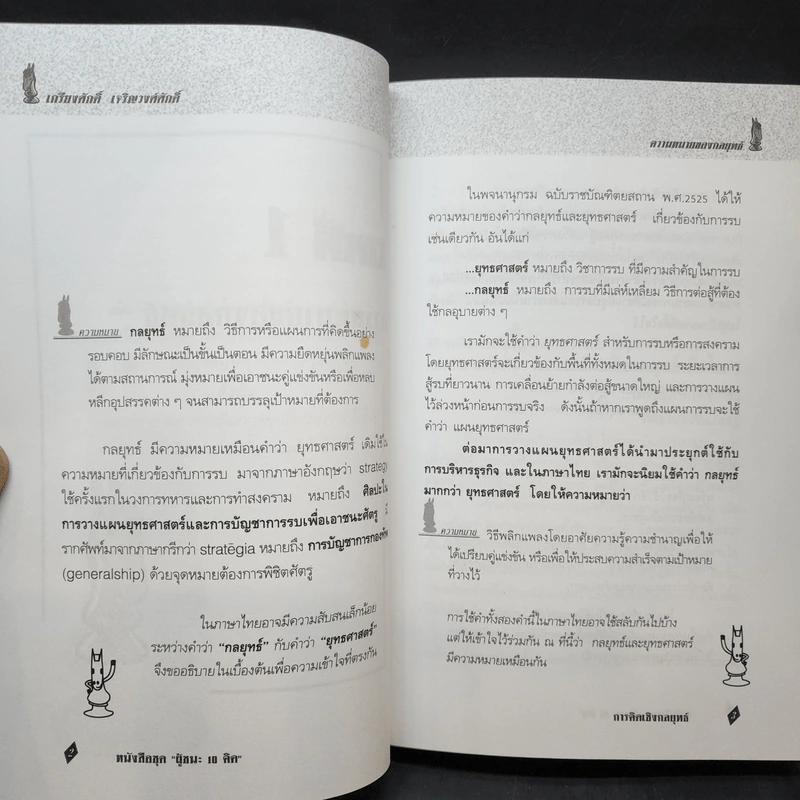 เกรียงศักดิ์ เจริญวงศ์ศักดิ์
ความหมาย กลยุทธ์ หมายถึง วิธีการหรือแผนการที่คิดขึ้นอย่าง
รอบคอบ มีลักษณะเป็นขั้นเป็นตอน มีความยืดหยุ่นพลิกแพลง
ได้ตามสถานการณ์ มุ่งหมายเพื่อเอาชนะคู่แข่งขันหรือเพื่อหลบ
หลีกอุปสรรคต่าง ๆ จนสามารถบรรลุเป้าหมายที่ต้องการ
กลยุทธ์ มีความหมายเหมือนคำว่า ยุทธศาสตร์ เดิมใช้ใน
ความหมายที่เกี่ยวข้องกับการรบ มาจากภาษาอังกฤษว่า strategy
ใช้ครั้งแรกในวงการทหารและการทำสงคราม หมายถึง ศิลปะใน
การวางแผนยุทธศาสตร์และการบัญชาการรบเพื่อเอาชนะศัตรู
รากศัพท์มาจากภาษากรีกว่า stratēgia หมายถึง การบัญชาการกองทัพ
(generalship) ด้วยจุดหมายต้องการพิชิตศัตรู
ในภาษาไทยอาจมีความสับสนเล็กน้อย
ระหว่างคำว่า "กลยุทธ์" กับคำว่า "ยุทธศาสตร์"
จึงขออธิบายในเบื้องต้นเพื่อความเข้าใจที่ตรงกัน
2 หนังสือชุด "ผู้ชนะ 10 คิด"
ความหมายของกลยุทธ์
ในพจนานุกรม ฉบับราชบัณฑิตยสถาน พ.ศ.2525 ได้ให้
ความหมายของคำว่ากลยุทธ์และยุทธศาสตร์ เกี่ยวข้องกับการรบ
เช่นเดียวกัน อันได้แก่
...ยุทธศาสตร์ หมายถึง วิชาการรบ ที่มีความสำคัญในการรบ
...กลยุทธ์ หมายถึง การรบที่มีเล่ห์เหลี่ยม วิธีการต่อสู้ที่ต้อง
ใช้กลอุบายต่าง ๆ
เรามักจะใช้คำว่า ยุทธศาสตร์ สำหรับการรบหรือการสงคราม
โดยยุทธศาสตร์จะเกี่ยวข้องกับพื้นที่ทั้งหมดในการรบ ระยะเวลาการ
สู้รบที่ยาวนาน การเคลื่อนย้ายกำลังต่อสู้ขนาดใหญ่ และการวางแผน
ไว้ล่วงหน้าก่อนการรบจริง ดังนั้นถ้าหากเราพูดถึงแผนการรบจะใช้
คำว่า แผนยุทธศาสตร์
ต่อมาการวางแผนยุทธศาสตร์ได้นำมาประยุกต์ใช้กับ
การบริหารธุรกิจ และในภาษาไทย เรามักจะนิยมใช้คำว่า กลยุทธ์
มากกว่า ยุทธศาสตร์ โดยให้ความหมายว่า
ความหมาย วิธีพลิกแพลงโดยอาศัยความรู้ความชำนาญเพื่อให้
ได้เปรียบคู่แข่งขัน หรือเพื่อให้ประสบความสำเร็จตามเป้าหมาย
ที่วางไว้
การใช้คำทั้งสองคำนี้ในภาษาไทยอาจใช้สลับกันไปบ้าง
แต่ให้เข้าใจไว้ร่วมกัน ณ ที่นี้ว่า กลยุทธ์และยุทธศาสตร์
มีความหมายเหมือนกัน
การคิดเชิงกลยุทธ์